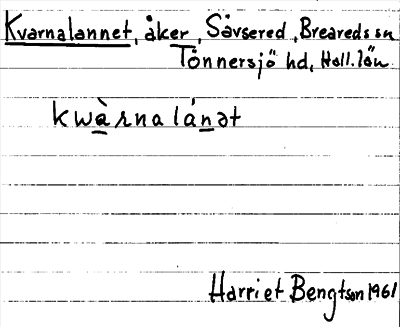 Kvarnalannet, åker, Sävsered, Breareds sn
Tönnersjö hd, Hall. län
kwàrnalánət
Harriet Bengtson 1961